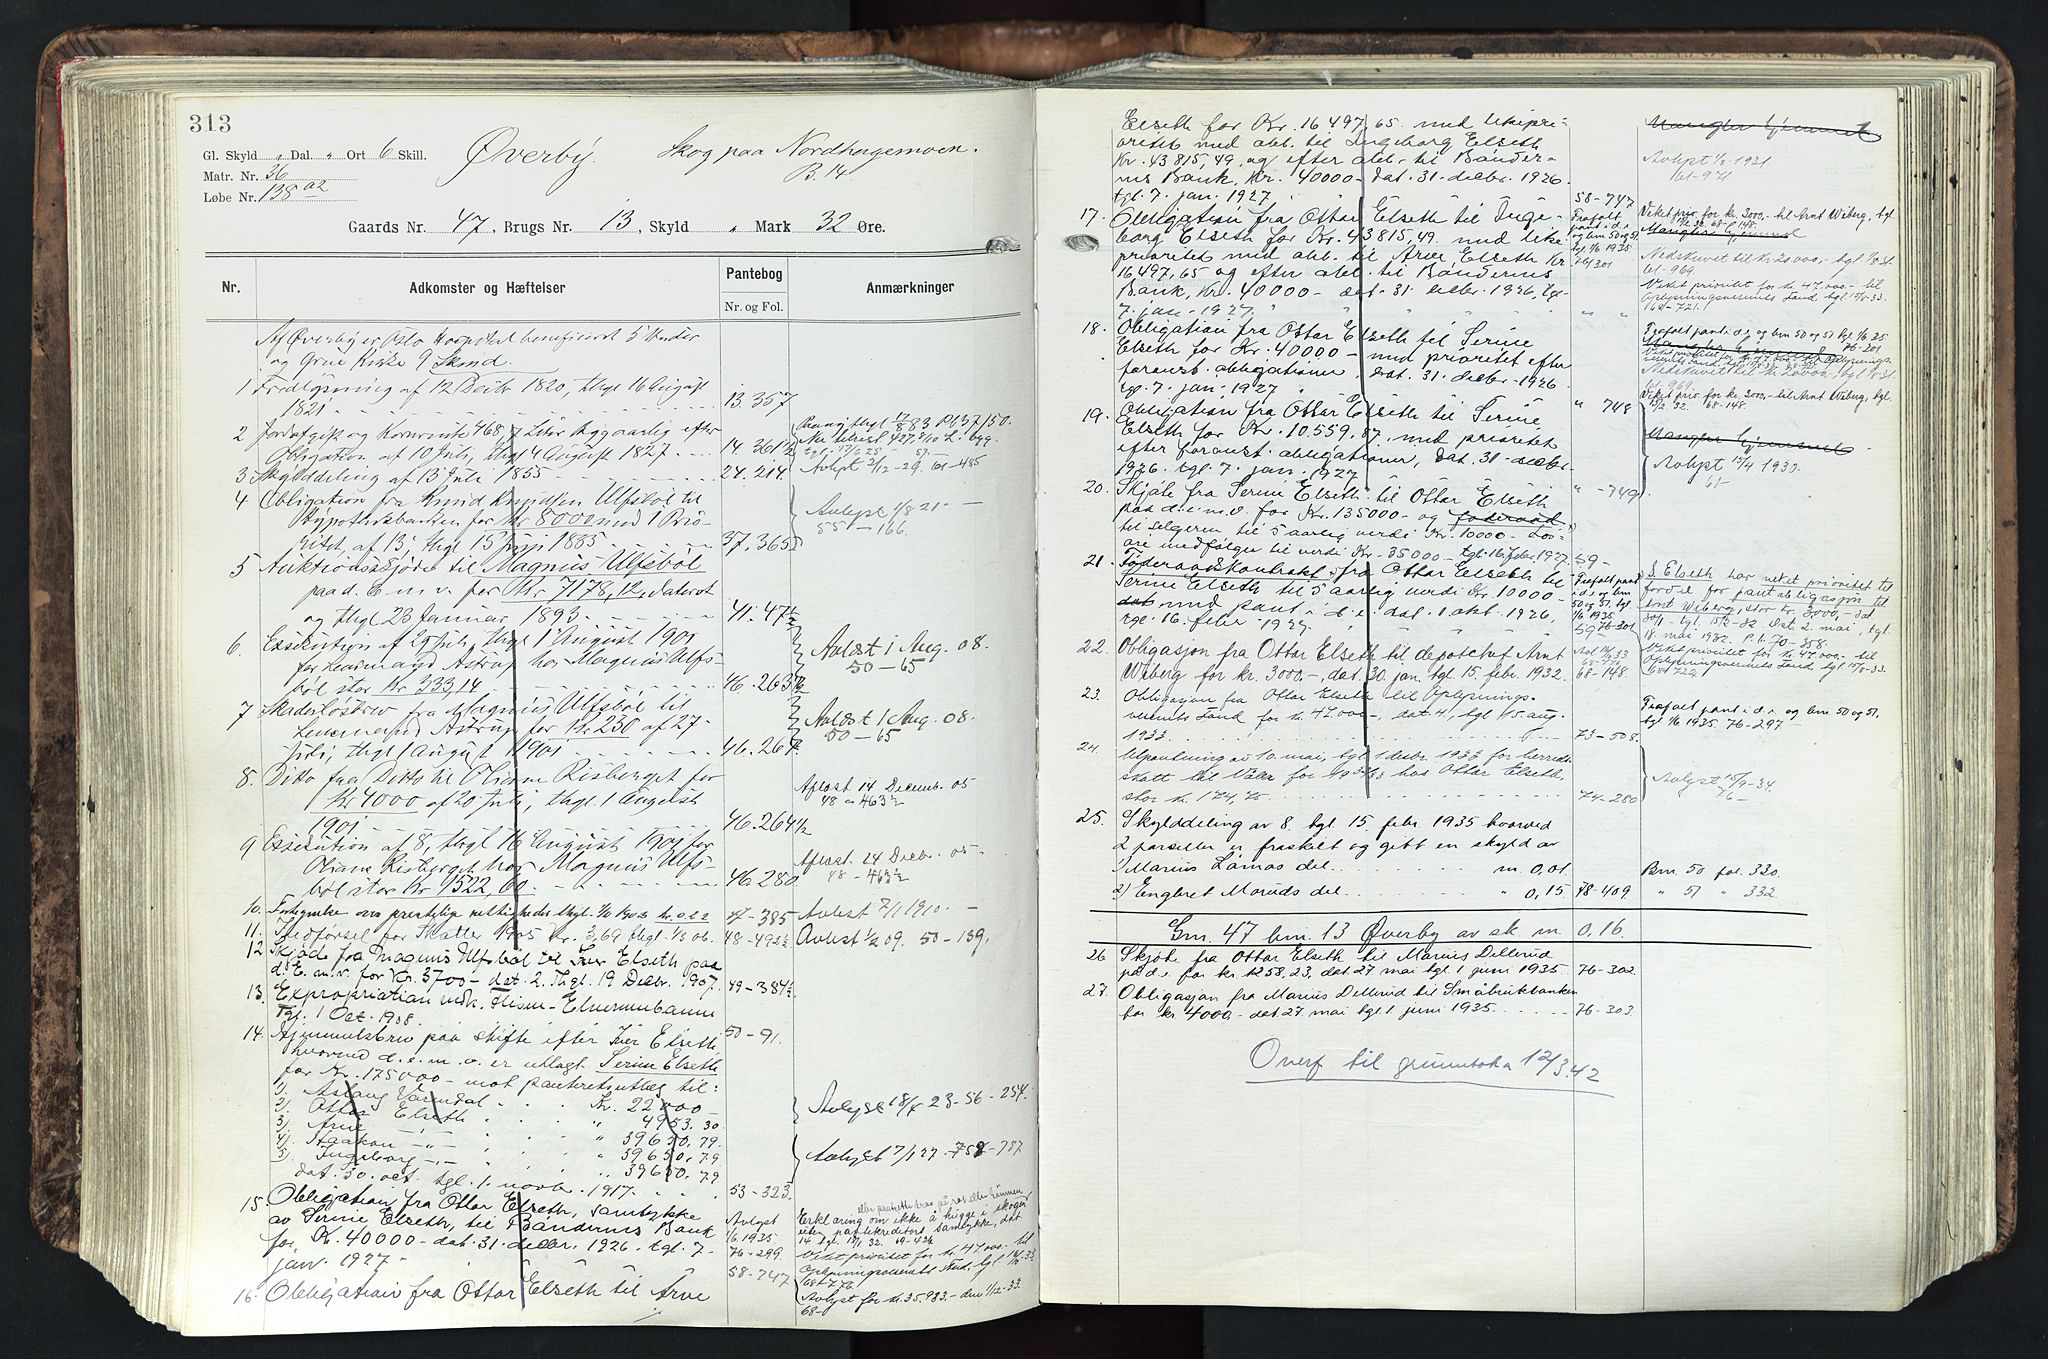 313
Gl. Skyld „ Dal. „ Ort 6 Skill. Øverby. Skog paa Nordhagemoen.
Matr. Nr. 36 B. 14
Løbe Nr. 138 a2
Gaards Nr. 47, Brugs Nr. 13, Skyld „ Mark 32 Øre.
Nr. Adkomster og Hæftelser Pantebog Anmærkninger
Nr. og Fol.
Af Øverby er Oslo Hospital beneficeret 5 Huder
og Grue Kirke 9 Skind.
1 Fradelgsning af 12 Decbr 1820, thgl 16 August
1821 13.357
2 Jordafgift og Kornrente 468 Liter Byg aarlig efter
Obligation af 10 Juli, thgl 4 August 1827. 14.361½
3 Skylddeling af 13 Juli 1855 24.214 Avlyst 2/12-29. 61-485
4 Obligation fra Knud Knudsen Ulfsbøl til
Hypothekbanken for Kr 8000 med 1 Prio-
ritet, af 13, thgl 15 Juni 1885 37.365 Avlyst 1/8 21 55-166.
5 Auktionsskjøde til Magnus Ulfsbøl
paa d. E. m. v. for Kr 7178,12, dateret
og thgl 23 Januar 1893 41.47½
6. Exsekution af 25 Juli, thgl 1 August 1901
for Lensmand Astrup hos Magnus Ulfs-
bøl stor Kr 333,14 46.263½ Avlæst 1 Aug. 08. 50-65
7 Skadesløsbrev fra Magnus Ulfsbøl til
Lensmand Astrup for Kr 230 af 27
Juli, thgl 1 August 1901 46.264. Avlæst 1 Aug. 08. 50-65
8. Ditto fra Ditto til Oliane Risberget for
Kr 4000 af 20 Juli, thgl 1 August
1901 46.264½ Aflæst 14 Decemb. 05 48-463½
9 Exsekution af 8, thgl 16 August 1901 for
Oliane Risberget hos Magnus Ulfs-
bøl stor Kr 1522,60. 46.280 Aflæst 14 Decbr. 05. 48-463½
10. Avlæst 7/1 1910. -
11. Udførsel for Skatter 1905 Kr. 3,69 thgl. 1/3 06. 48-492½ Avlæst ½ 09. 50-139.
12 Skjøde fra Magnus Ulfsbøl til Iver Elseth paa
d. E. m. v. for Kr. 3700- dat. 2. Thgl. 19 Decbr. 1907. 49-384½
13. Expropriation vedk. Flisen-Elverumbanen
Tgl. 1 Oct. 1908.
14. Hjemmelsbrev paa skifte efter Iver Elseth, 50-91.
hvorved d. e. m. v. er utlagt Serine Elseth
for Kr. 175000- mot panteretsutlæg til:
1). Aslaug Varmdal Kr. 22000-
2). Ottar Elseth " 4953.30
3). Arne -"- " 39650.79
4). Haakon -"- " 39650.79
5). Ingeborg -"- " 39650.79
dat. 30. oct. tgl. 1. novbr. 1917. 53-323.
Avlyst 18/8 23-56-254.
Avlyst 7/1 27-58-757
15. Obligation fra Ottar Elseth, samtykke
av Serine Elseth, til Bøndernes Bank
for Kr. 40000- dat. 31. decbr. 1926. tgl. 7-
jan. 1927-
Avlyst 1/6 1935 76-299. 58-747
Erklæring om ikke å hugge i skogen
uten pantekreditors samtykke, dat
Veket prioritet for kr. 47.000.- til
Oplysningsvesenets Fond, tgl 15/8 33
68-
Avlyst for kr. 35.983.- den 1/12-33.
68-
16. Obligation fra Ottar Elseth til Arne
Elseth for Kr. 16497,65 med likepri-
oritet med obl. til Ingeborg Elseth
Kr. 43815,49, og efter obl. til Bønder-
nes Bank, Kr. 40000- dat. 31. decbr. 1926.
tgl. 7. jan. 1927 58-747
Mangler hjemmel
Avlyst 1/8 1931
61-971
17. Obligation fra Ottar Elseth til Inge-
borg Elseth for Kr. 43815,49. med like-
prioritet med obl. til Arne Elseth Kr.
16497,65 og efter obl. til Bøndernes
Bank, Kr. 40000- dat. 31. decbr. 1926, tgl.
7. jan. 1927. " "
Frafalt pant i d. e. og bm 50 og 51. tgl. 1/6 1935 76-301
Veket prio. for kr. 3000,- til Arnt Wiberg, tgl.
15/2 32. 68-148.
Mangler hjemmel
Nedskrevet til kr. 20000,- tgl 1/8 31.
61-969.
Veket prioritet for kr. 47.000.- til
Oplysningsvesenets Fond tgl 15/8-33.
68-721.
18. Obligation fra Ottar Elseth til Serine
Elseth for Kr. 40000- med prioritet efter
foranst. obligationer, dat. 31. decbr. 1926.
tgl. 7. jan. 1927 " 748
Frafalt pant i d. e. og bm 50 og 51 tgl. 1/6 35
76-301
Mangler hjemmel
Nedskrevet til kr. 20000,- tgl 1/8 31.
61-969.
Veket prio. for kr. 3000,- til Arnt Wiberg, tgl.
15/2. 32. 68-148.
19. Obligation fra Ottar Elseth til Serine
Elseth for Kr. 10.559,87. med prioritet
efter foranst. obligationer, dat. 31. decbr.
1926. tgl. 7. jan. 1927 " -749
Mangler hjemmel
Avlyst 15/4 1930.
61-
20. Skjøte fra Serine Elseth til Ottar Elseth
paa d. e. m. v. for Kr. 135000- og føderaad
til selgeren til 5 aarlig verdi Kr. 10000- Løs-
øre medfølger til verdi Kr. 35000- tgl. 16. febr. 1927. 59-
21. Føderaadskontrakt fra Ottar Elseth til
Serine Elseth til 5 aarlig verdi Kr 10000-
dat med pant i d. e. dat. 1. okt. 1926.
tgl. 16. febr. 1927. 59
Frafalt pant i d. e. og bm 50 og 51. tgl. 1/6 1935 76-301
S. Elseth har veket prioritet til
fordel for pantobligasjon til
Arnt Wiberg, stor kr. 3000,- dat.
30/1- tgl. 15/2-32 Dat 2. mai, tgl.
18. mai 1932. P.b. 70-358.
Veket prioritet for kr. 47.000.- til
Oplysningsvesenets Fond, tgl 15/8-33.
68-722
22. Obligasjon fra Ottar Elseth til depotchef Arnt
Wiberg for kr. 3000,-, dat. 30. jan. tgl. 15. febr. 1932. 68-148.
23. Obligasjon fra Ottar Elseth til Oplysnings-
vesenets Fond for kr. 47.000-, dat. 4, tgl 15 aug.
1933 73-508.
Frafalt pant i d. e. og bm 50 og 51,
tgl. 1/6 1935. 76-297.
24. Utpantning av 10. mai, tgl. 1 desbr. 1933 for herreds-
skatt til Våler for 19 32/33 hos Ottar Elseth,
stor kr. 174,75 74-280 Avlyst 15/9-34. 76-
25. Skylddeling av 8. tgl. 15. febr. 1935 hvorved
2 parseller er fraskilt og gitt en skyld av
1) Marius Lørnas del m. 0,01. Bm. 50 fol. 330.
2) Englret Moruds del " 0,15 78-409. " 51 " 332
Gm. 47 bm. 13 Øverby av sk. m. 0,16.
26 Skjøte fra Ottar Elseth til Marius Dellerud
på d. e. for kr 1258,23, dat. 27 mai tgl 1 juni 1935. 76-302.
27. Obligasjon fra Marius Dellerud til Småbrukbanken
for kr 4000.- dat. 27. mai tgl. 1 juni 1935 76-303.
Overf til grunnboka 12/3.42